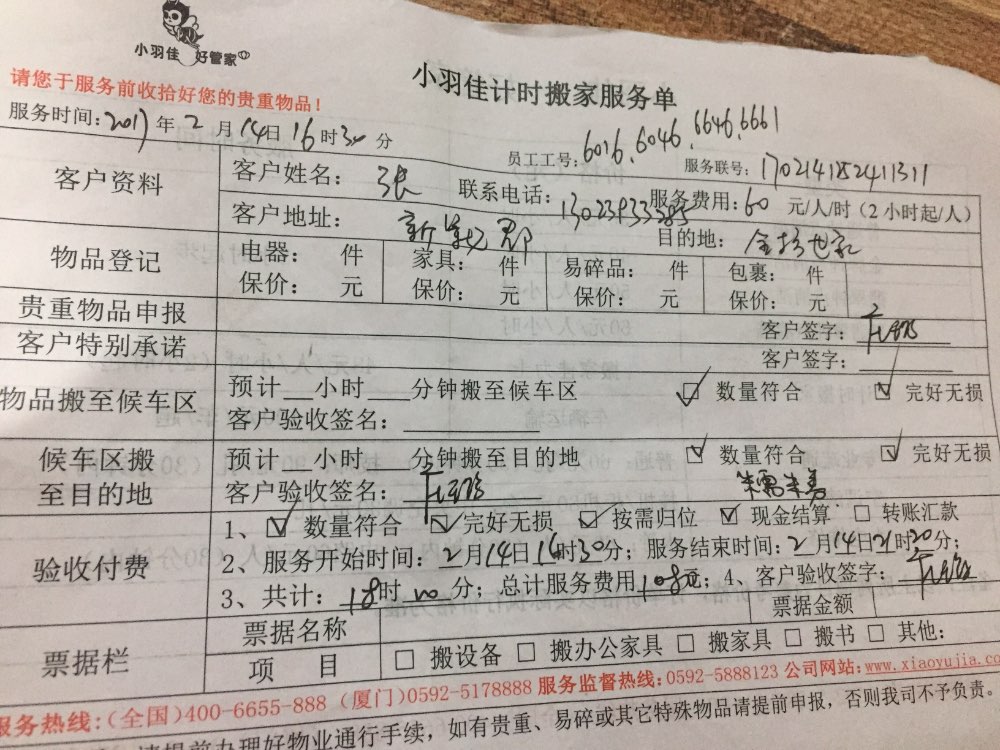 小羽佳 好管家
小羽佳计时搬家服务单
请您于服务前收拾好您的贵重物品！
服务时间：2017年2月14日16时30分
员工工号：6016、6046、6646、6661
服务联号：170214182411311
客户资料
客户姓名：张 联系电话： 服务费用：60 元/人/时（2小时起/人）
客户地址： 目的地：
物品登记
电器： 件 家具： 件 易碎品： 件 包裹： 件
保价： 元 保价： 元 保价： 元 保价： 元
贵重物品申报 客户签字：
客户特别承诺 客户签字：
物品搬至候车区
预计 小时 分钟搬至候车区 数量符合 完好无损
客户验收签名：
候车区搬至目的地
预计 小时 分钟搬至目的地 数量符合 完好无损
客户验收签名：
验收付费
1、数量符合 完好无损 按需归位 现金结算 转账汇款
2、服务开始时间：2月14日16时30分；服务结束时间：2月14日21时20分；
3、共计：18时 分；总计服务费用108元；4、客户验收签字：
票据栏
票据名称 票据金额
项 目 搬设备 搬办公家具 搬家具 搬书 其他：
服务热线：（全国）400-6655-888（厦门）0592-5178888 服务监督热线：0592-5888123 公司网站：www.xiaoyujia.co
请提前办理好物业通行手续，如有贵重、易碎或其它特殊物品请提前申报，否则我司不予负责。